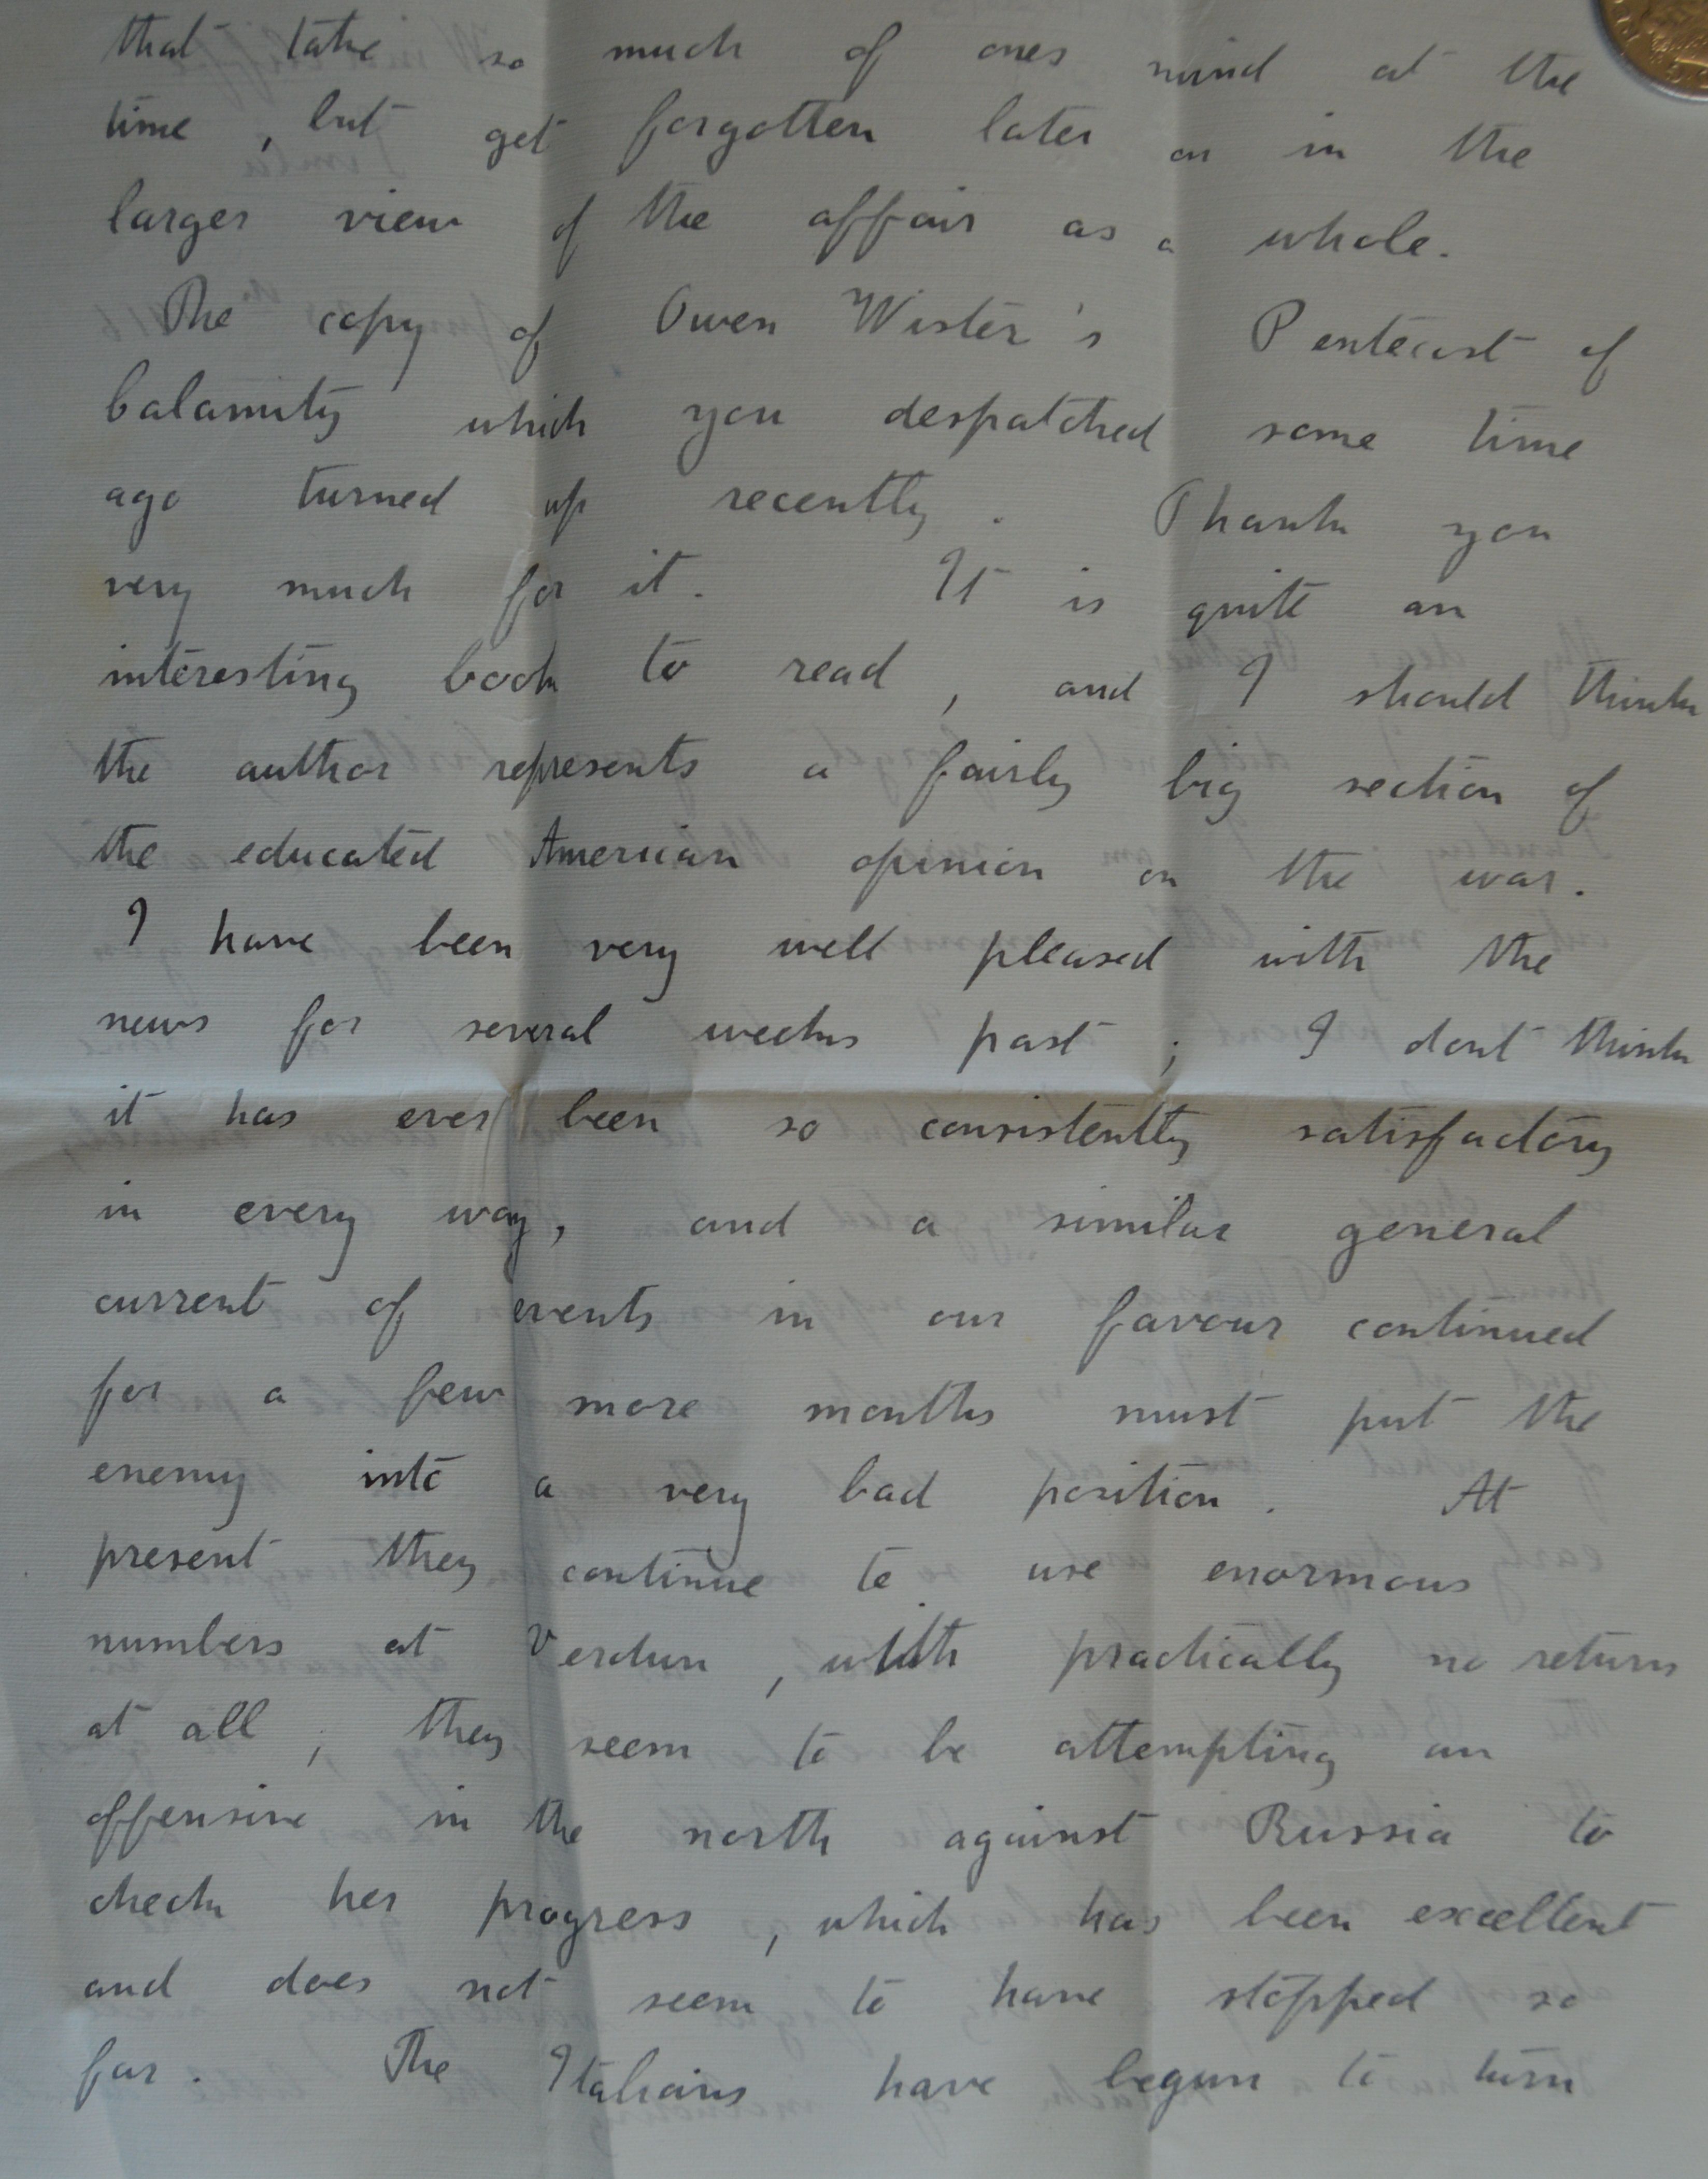 that take so much of ones mind at the
time, but get forgotten later on in the
larger view of the affair as a whole.
The copy of Owen Wister's Pentecost of
Calamity which you despatched some time
ago turned up recently. Thank you
very much for it. It is quite an
interesting book to read, and I should think
the author represents a fairly big section of
the educated American opinion on the war.
I have been very well pleased with the
news for several weeks past; I dont think
it has ever been so consistently satisfactory
in every way, and a similar general
current of events in our favour continued
for a few more months must put the
enemy into a very bad position. At
present they continue to use enormous
numbers at Verdun, with practically no return
at all; they seem to be attempting an
offensive in the north against Russia to
check her progress, which has been excellent
and does not seem to have stopped so
far. The Italians have begun to turn